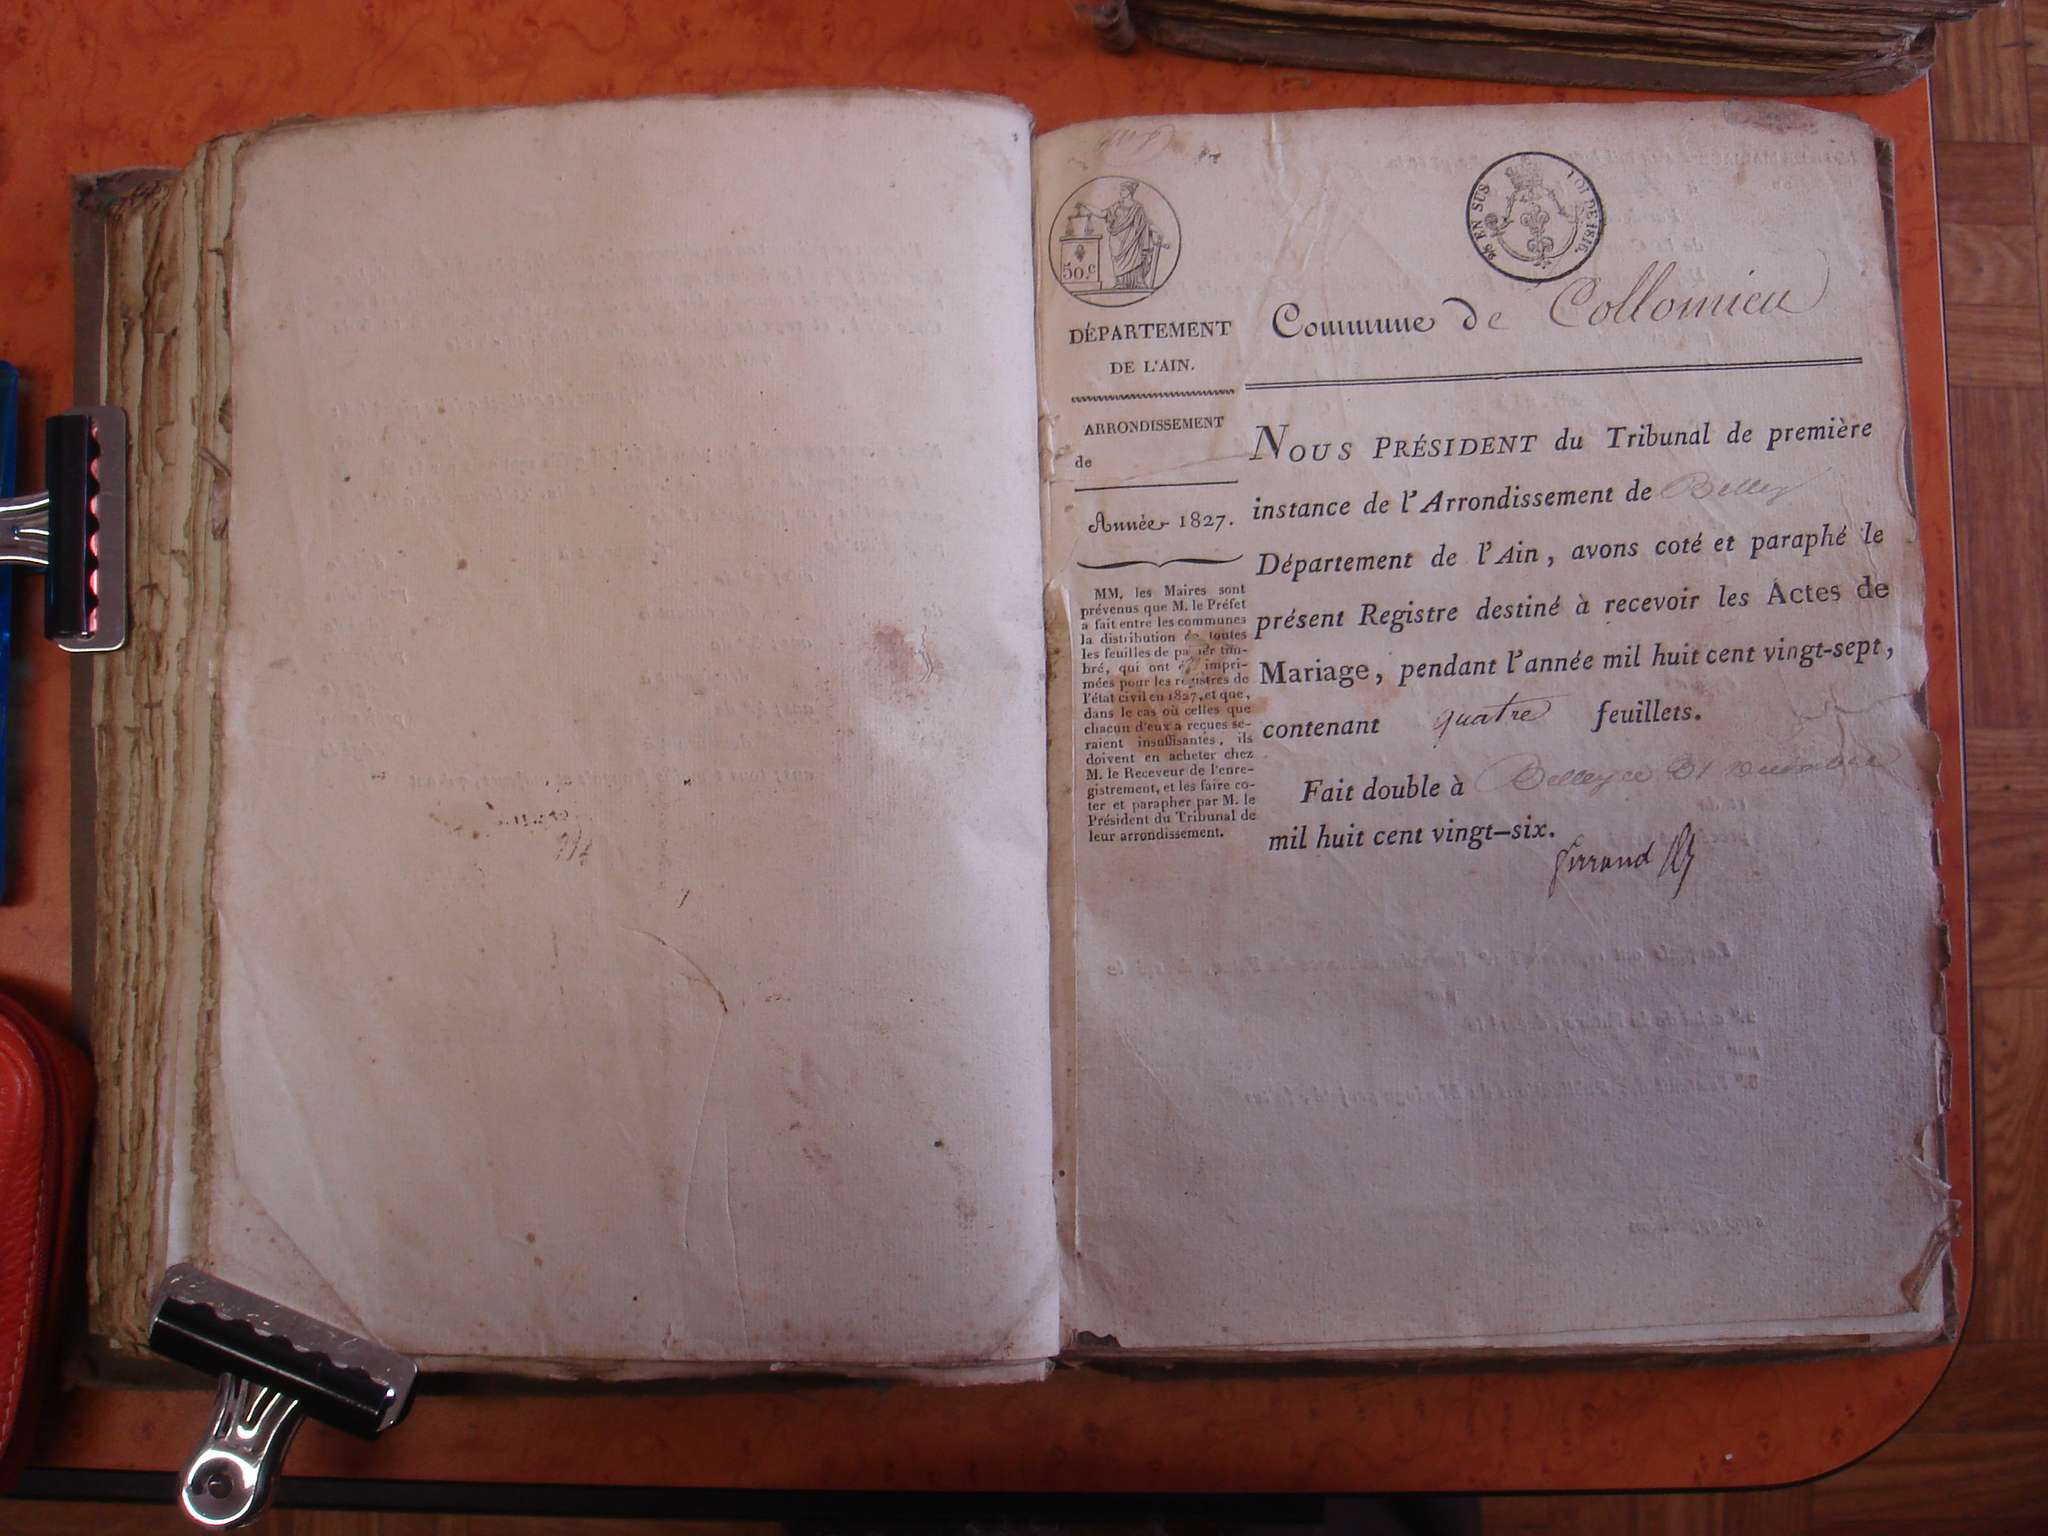 50.c
98 EN SUS LOI DE 1816.
DÉPARTEMENT
DE L'AIN.
ARRONDISSEMENT
de
Année 1827.
MM. les Maires sont
prévenus que M. le Préfet
a fait entre les communes
la distribution de toutes
les feuilles de papier tim-
bré, qui ont été impri-
mées pour les registres de
l'état civil en 1827, et que,
dans le cas où celles que
chacun d'eux a reçues se-
raient insuffisantes, ils
doivent en acheter chez
M. le Receveur de l'enre-
gistrement, et les faire co-
ter et parapher par M. le
Président du Tribunal de
leur arrondissement.
Commune de Collomieu
NOUS PRÉSIDENT du Tribunal de première
instance de l'Arrondissement de Belley
Département de l'Ain, avons coté et paraphé le
présent Registre destiné à recevoir les Actes de
Mariage, pendant l'année mil huit cent vingt-sept,
contenant quatre feuillets.
Fait double à Belley ce 31 décembre
mil huit cent vingt-six.